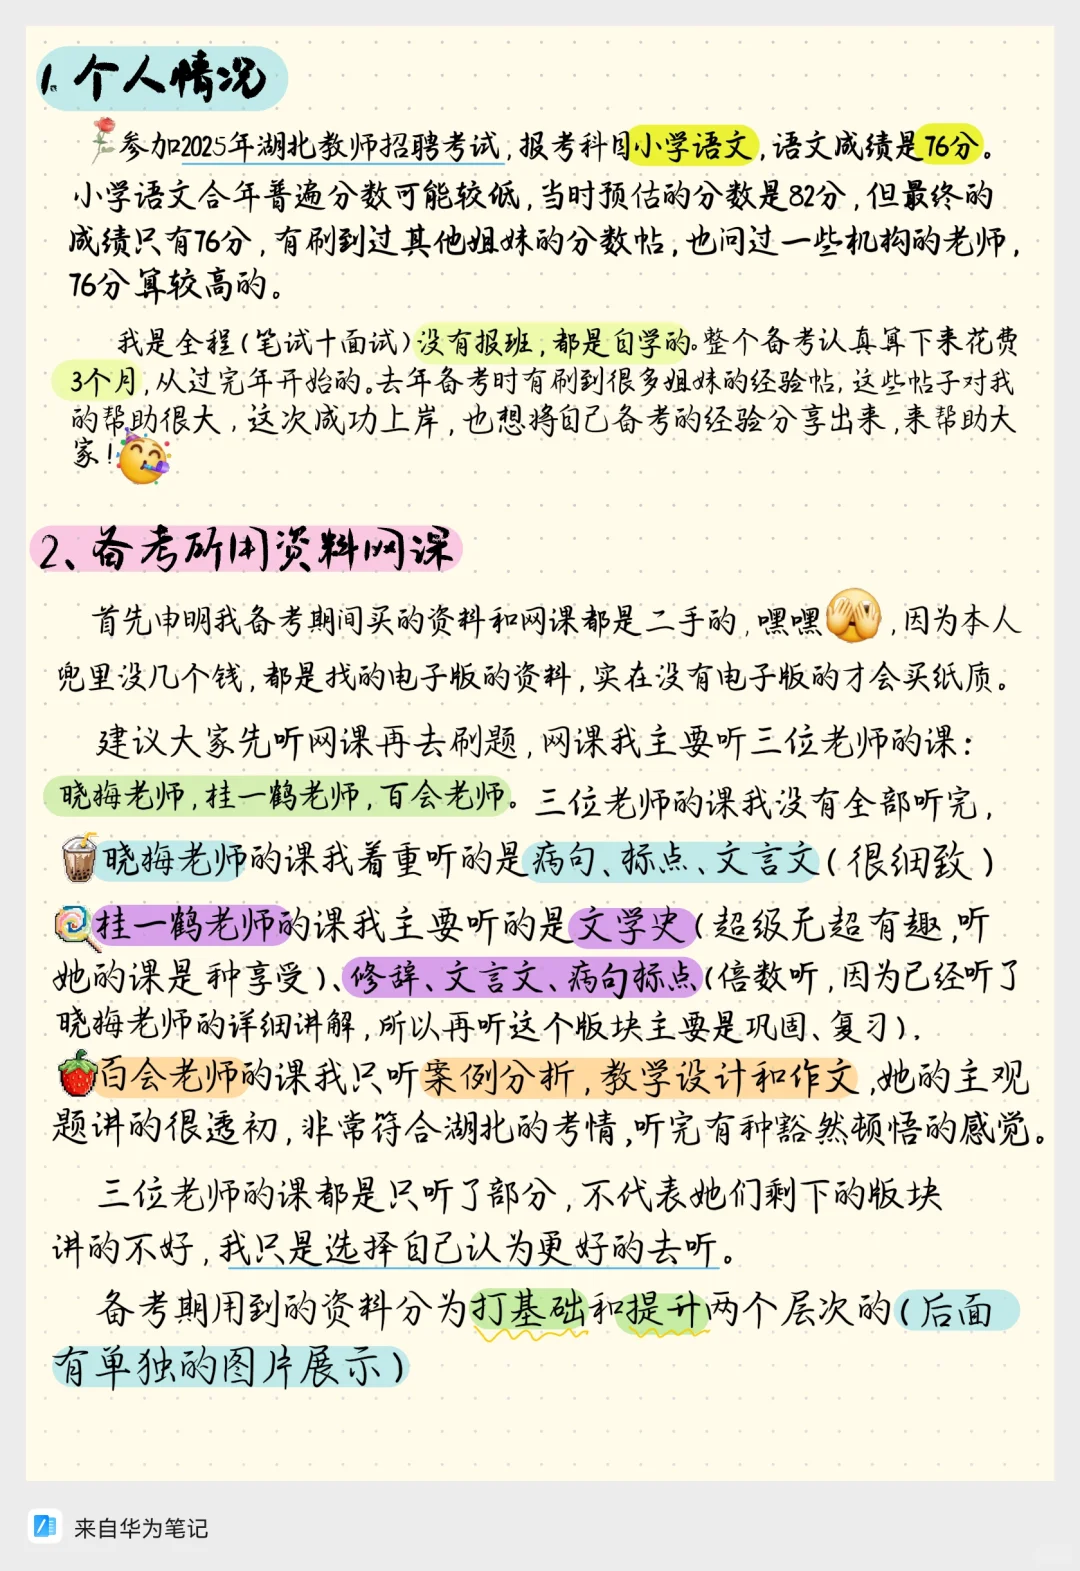 1、个人情况
参加2025年湖北教师招聘考试，报考科目小学语文，语文成绩是76分。
小学语文合年普遍分数可能较低，当时预估的分数是82分，但最终的
成绩只有76分，有刷到过其他姐妹的分数帖，也问过一些机构的老师，
76分算较高的。
我是全程（笔试十面试）没有报班，都是自学的。整个备考认真算下来花费
3个月，从过完年开始的。去年备考时有刷到很多姐妹的经验帖，这些帖子对我
的帮助很大，这次成功上岸，也想将自己备考的经验分享出来，来帮助大
家！
2、备考所用资料网课
首先申明我备考期间买的资料和网课都是二手的，嘿嘿，因为本人
兜里没几个钱，都是找的电子版的资料，实在没有电子版的才会买纸质。
建议大家先听网课再去刷题，网课我主要听三位老师的课：
晓梅老师，桂一鹤老师，百会老师。三位老师的课我没有全部听完，
晓梅老师的课我着重听的是病句、标点、文言文（很细致）
桂一鹤老师的课我主要听的是文学史（超级无超有趣，听
她的课是种享受）、修辞、文言文、病句标点（倍数听，因为已经听了
晓梅老师的详细讲解，所以再听这个版块主要是巩固、复习）．
百会老师的课我只听案例分析，教学设计和作文，她的主观
题讲的很透初，非常符合湖北的考情，听完有种豁然顿悟的感觉。
三位老师的课都是只听了部分，不代表她们剩下的版块
讲的不好，我只是选择自己认为更好的去听。
备考期用到的资料分为打基础和提升两个层次的（后面
有单独的图片展示）
来自华为笔记